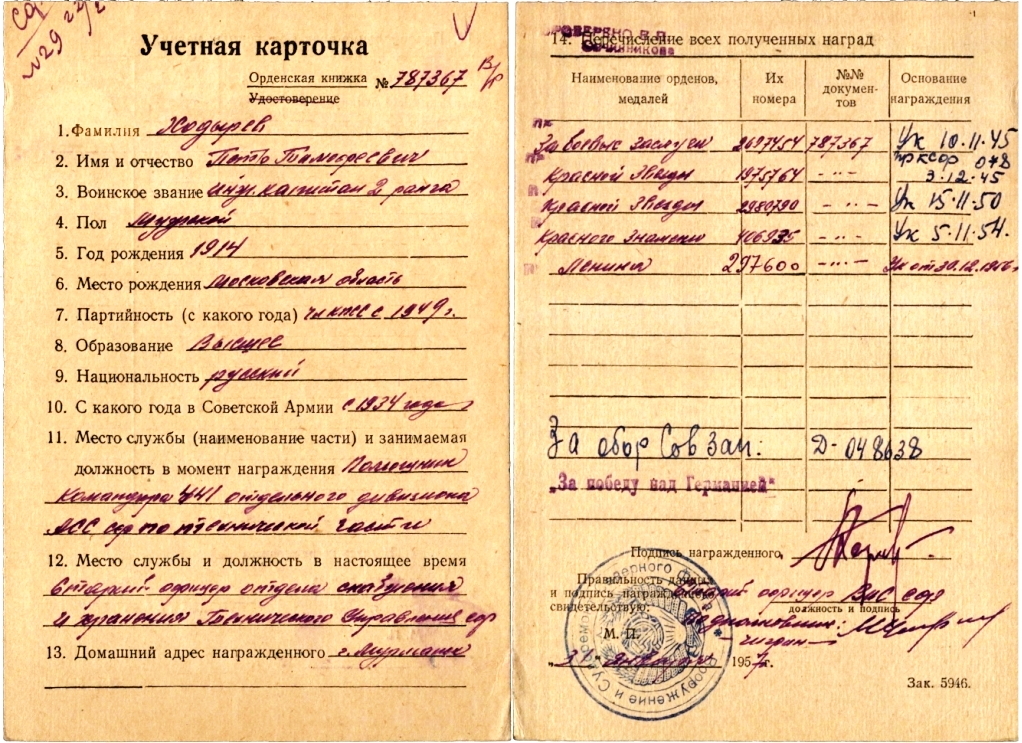 СФ
N29
Учетная карточка
Орденская книжка № 787367
Удостоверение
1. Фамилия Ходырев
2. Имя и отчество Петр Тимофеевич
3. Воинское звание инж. капитан 2 ранга
4. Пол Мужской
5. Год рождения 1914
6. Место рождения Московская область
7. Партийность (с какого года) чл КПСС с 1949 г.
8. Образование Высшее
9. Национальность русский
10. С какого года в Советской Армии с 1934 года
11. Место службы (наименование части) и занимаемая
должность в момент награждения Помощник
командира 441 отдельного дивизиона
АСС СФ по технической части
12. Место службы и должность в настоящее время
Старший офицер отдела снабжения
и хранения Технического Управления СФ
13. Домашний адрес награжденного г. Мурманск
ПРОВЕРЕНО В.П.
ОВЧИННИКОВА
14. Перечисление всех полученных наград
Наименование орденов, медалей
Их номера
№№ документов
Основание награждения
За боевые заслуги 2697454 787367 Ук 10.11.45
Красной Звезды 1975764 -"- прКСФ 048
3.12.45
Красной Звезды 2980790 -"- Ук 15.11.50
Красного Знамени 406935 -"- Ук 5.11.54.
Ленина 297600 -"- Ук от 30.12.1956г
За обор Сов Зап. Д-048638
„За победу над Германией"
Подпись награжденного
Правильность данных
и подпись награжденного
свидетельствую:
старший офицер СФ
должность и подпись
подполковник:
М. П.
1957г.
Зак. 5946.